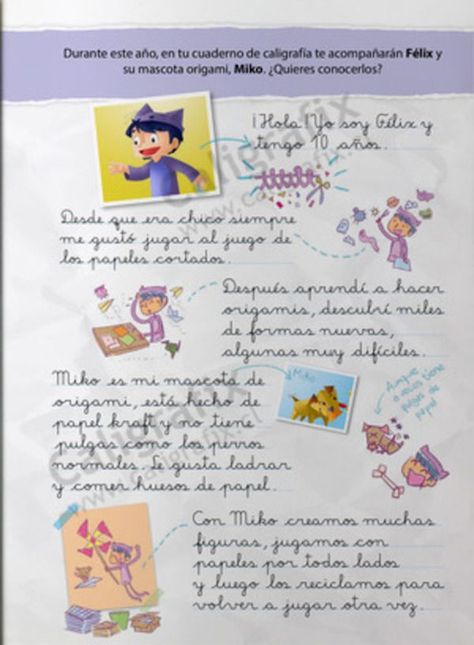 Durante este año, en tu cuaderno de caligrafía te acompañarán Félix y
su mascota origami, Miko. ¿Quieres conocerlos?
¡Hola! Yo soy Félix y
tengo 10 años.
Desde que era chico siempre
me gustó jugar al juego de
los papeles cortados.
Después aprendí a hacer
origamis, descubrí miles
de formas nuevas,
algunas muy difíciles.
Miko es mi mascota de
origami, está hecho de
papel kraft y no tiene
pulgas como los perros
normales. Le gusta ladrar
y comer huesos de papel.
Miko
Aunque
a veces tiene
pulgas de
papel
Con Miko creamos muchas
figuras, jugamos con
papeles por todos lados
y luego los reciclamos para
volver a jugar otra vez.
Caligrafix
www.caligrafix.cl
Caligrafix
www.caligrafix.cl